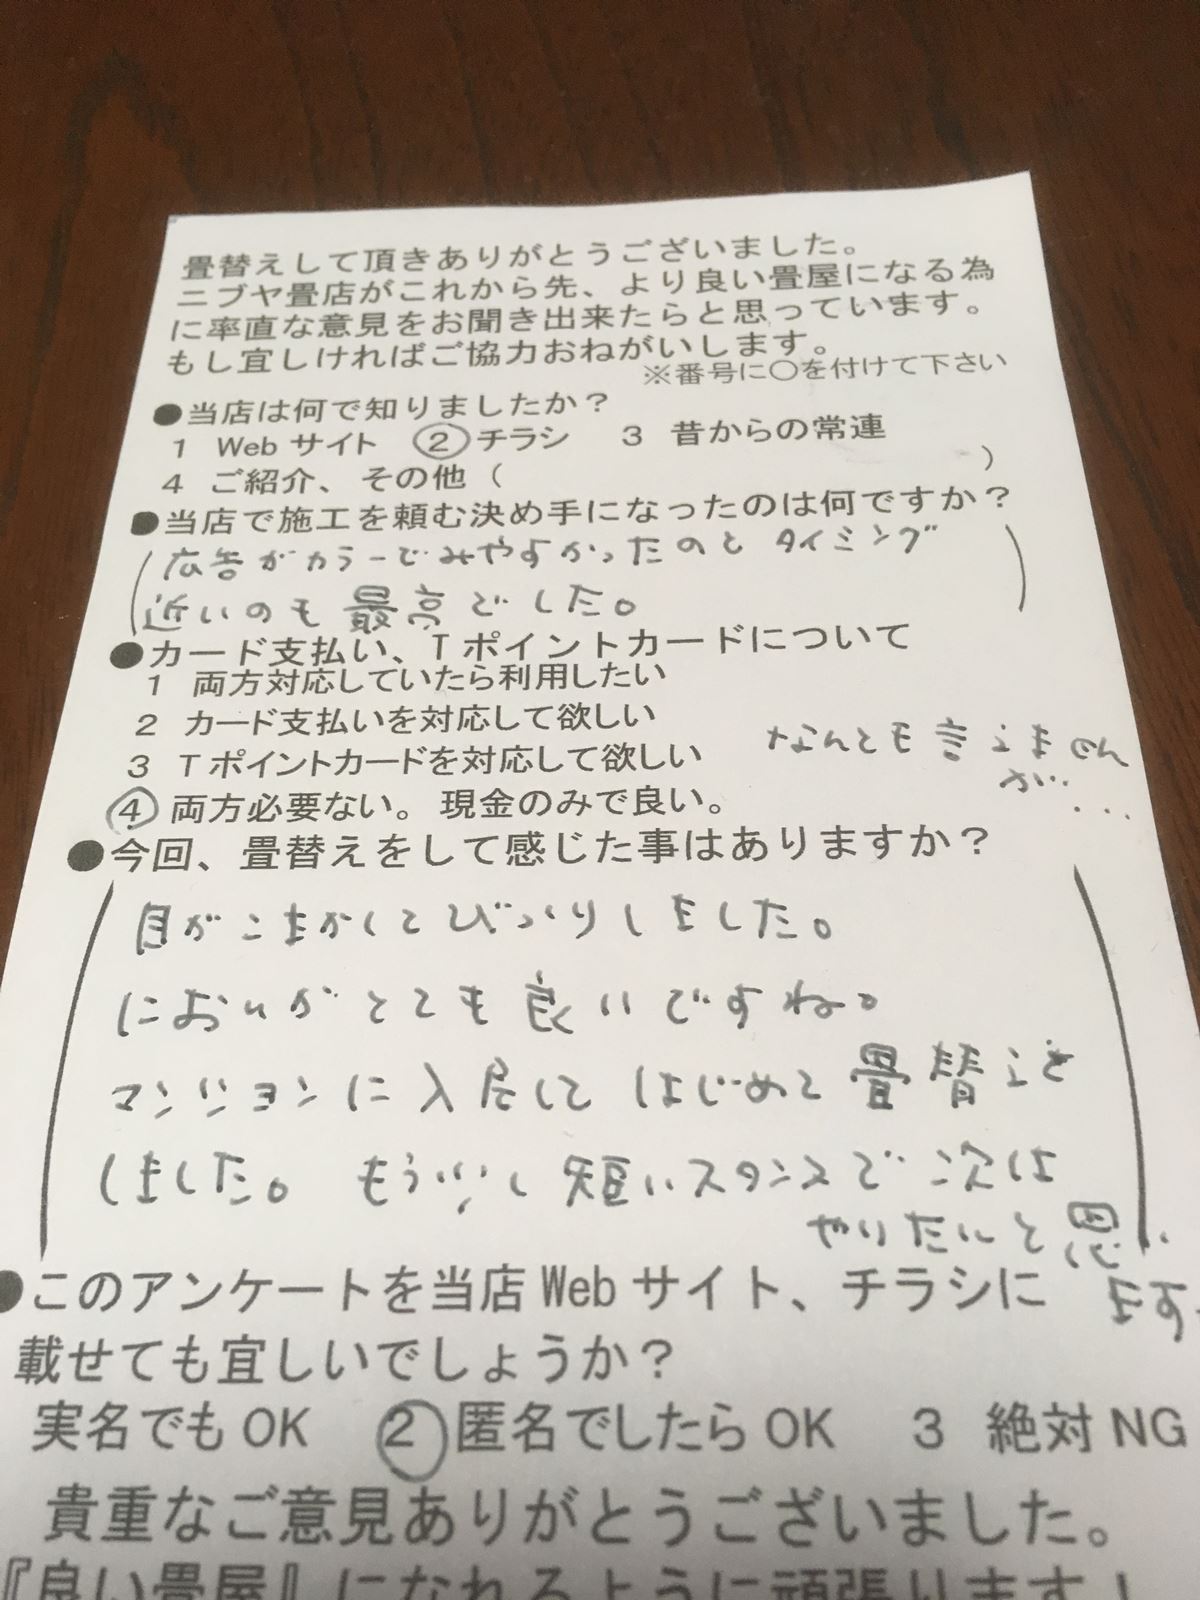 畳替えして頂きありがとうございました。
ニブヤ畳店がこれから先、より良い畳屋になる為
に率直な意見をお聞き出来たらと思っています。
もし宜しければご協力おねがいします。
※番号に〇を付けて下さい
●当店は何で知りましたか？
1 Webサイト ②チラシ 3 昔からの常連
4 ご紹介、その他（ ）
●当店で施工を頼む決め手になったのは何ですか？
（広告がカラーでみやすかったのと タイミング
近いのも最高でした。）
●カード支払い、Tポイントカードについて
1 両方対応していたら利用したい
2 カード支払いを対応して欲しい
3 Tポイントカードを対応して欲しい
なんとも言えません
が…
④両方必要ない。現金のみで良い。
●今回、畳替えをして感じた事はありますか？
目がこまかくてびっくりしました。
においがとても良いですね。
マンションに入居してはじめて畳替えを
しました。もう少し短いスタンスで次は
やりたいと思い
ます。
●このアンケートを当店Webサイト、チラシに
載せても宜しいでしょうか？
実名でもOK ②匿名でしたらOK 3 絶対NG
貴重なご意見ありがとうございました。
『良い畳屋』になれるように頑張ります！